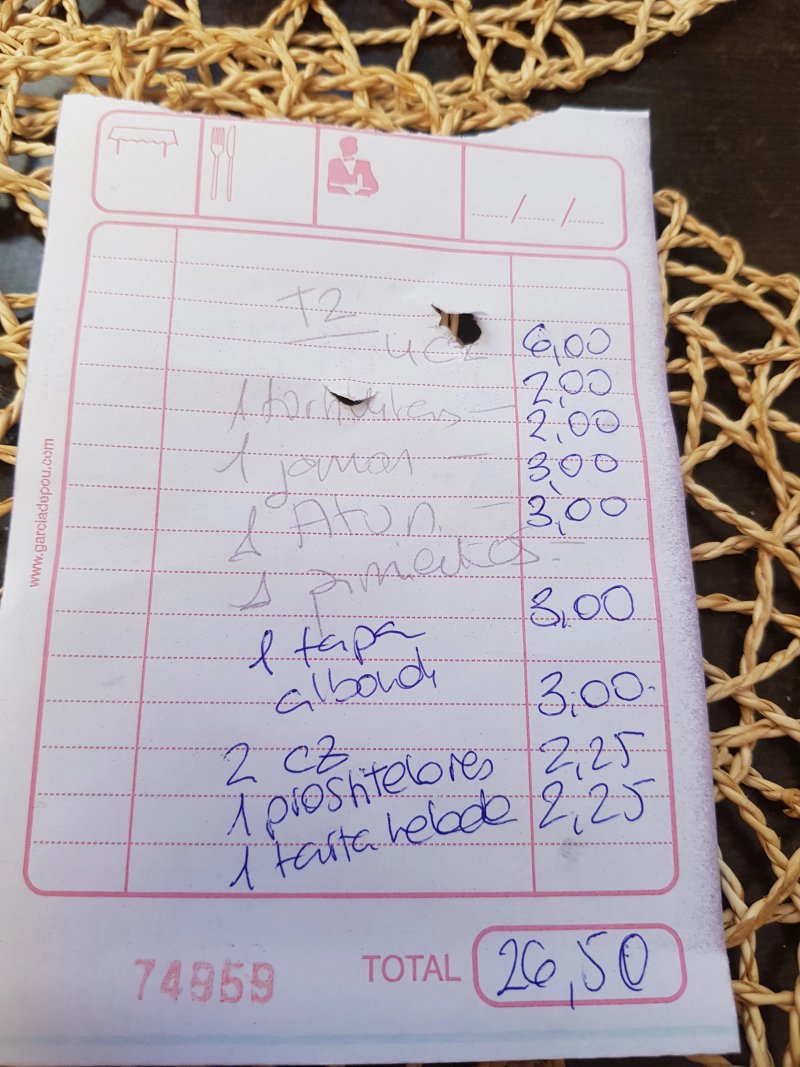 T2
4 cz 6,00
1 tortillitas – 2,00
1 jamon – 2,00
1 Atun. – 3,00
1 pimientos – 3,00
1 tapa
albondi 3,00
2 cz 3,00
1 proshitelores 2,25
1 tarta helade 2,25
www.garciadepou.com
74959 TOTAL 26,50